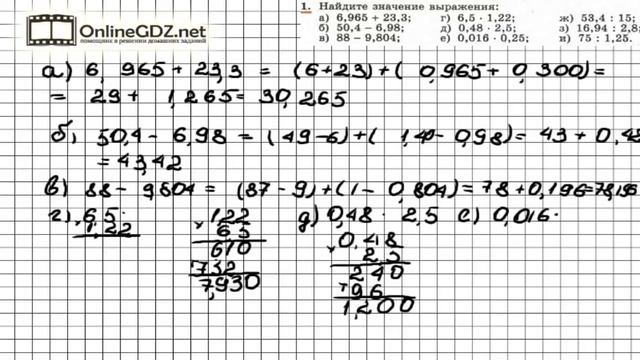 OnlineGDZ.net
помощник в решении домашних заданий
1. Найдите значение выражения:
а) 6,965 + 23,3; г) 6,5 · 1,22; ж) 53,4 : 15;
б) 50,4 – 6,98; д) 0,48 · 2,5; з) 16,94 : 2,8;
в) 88 – 9,804; е) 0,016 · 0,25; и) 75 : 1,25.
а) 6,965 + 23,3 = (6+23)+( 0,965 + 0,300) =
= 29 + 1,265 = 30,265
б) 50,4 – 6,98 = (49–6)+( 1,40–0,98) = 43 + 0,42
= 43,42
в) 88 – 9,804 = (87 – 9)+(1 – 0,804) = 78 + 0,196 = 78,196
г) 6,5 · 1,22 д) 0,48 · 2,5 е) 0,016 ·
1,22
65
610
732
7,930
0,48
2,5
240
96
1,200